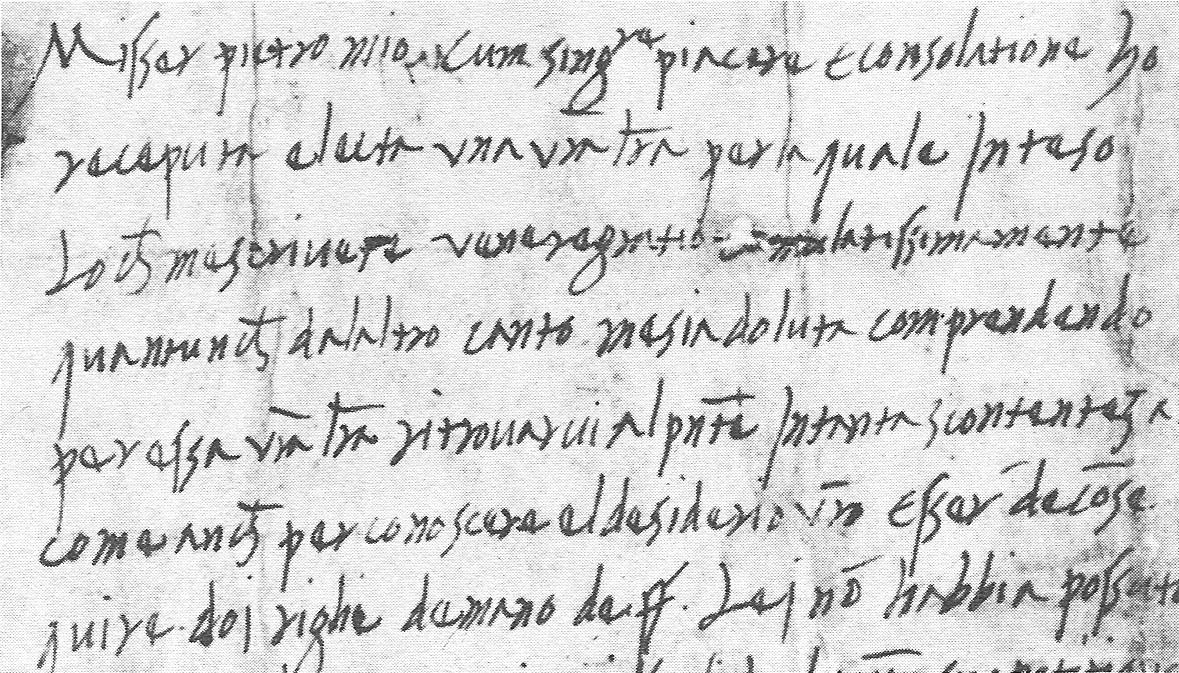 Misser pietro mio. Cum sing^re piacere E consolatione ho
receputa e lecta vna vr̄a lr̄a per la quale Inteso
Lo ch̄ me scriuete vene regratio latissimamente
quantunch̄ dalaltro canto me sia doluta comprendendo
per essa vr̄a lr̄a ritrouarui al pn̄te In tanta scontenteza
come anch̄ per conoscere el desiderio vr̄o Esser de cōse
quire doi righe de mano de ff. Lej nō habbia possuto